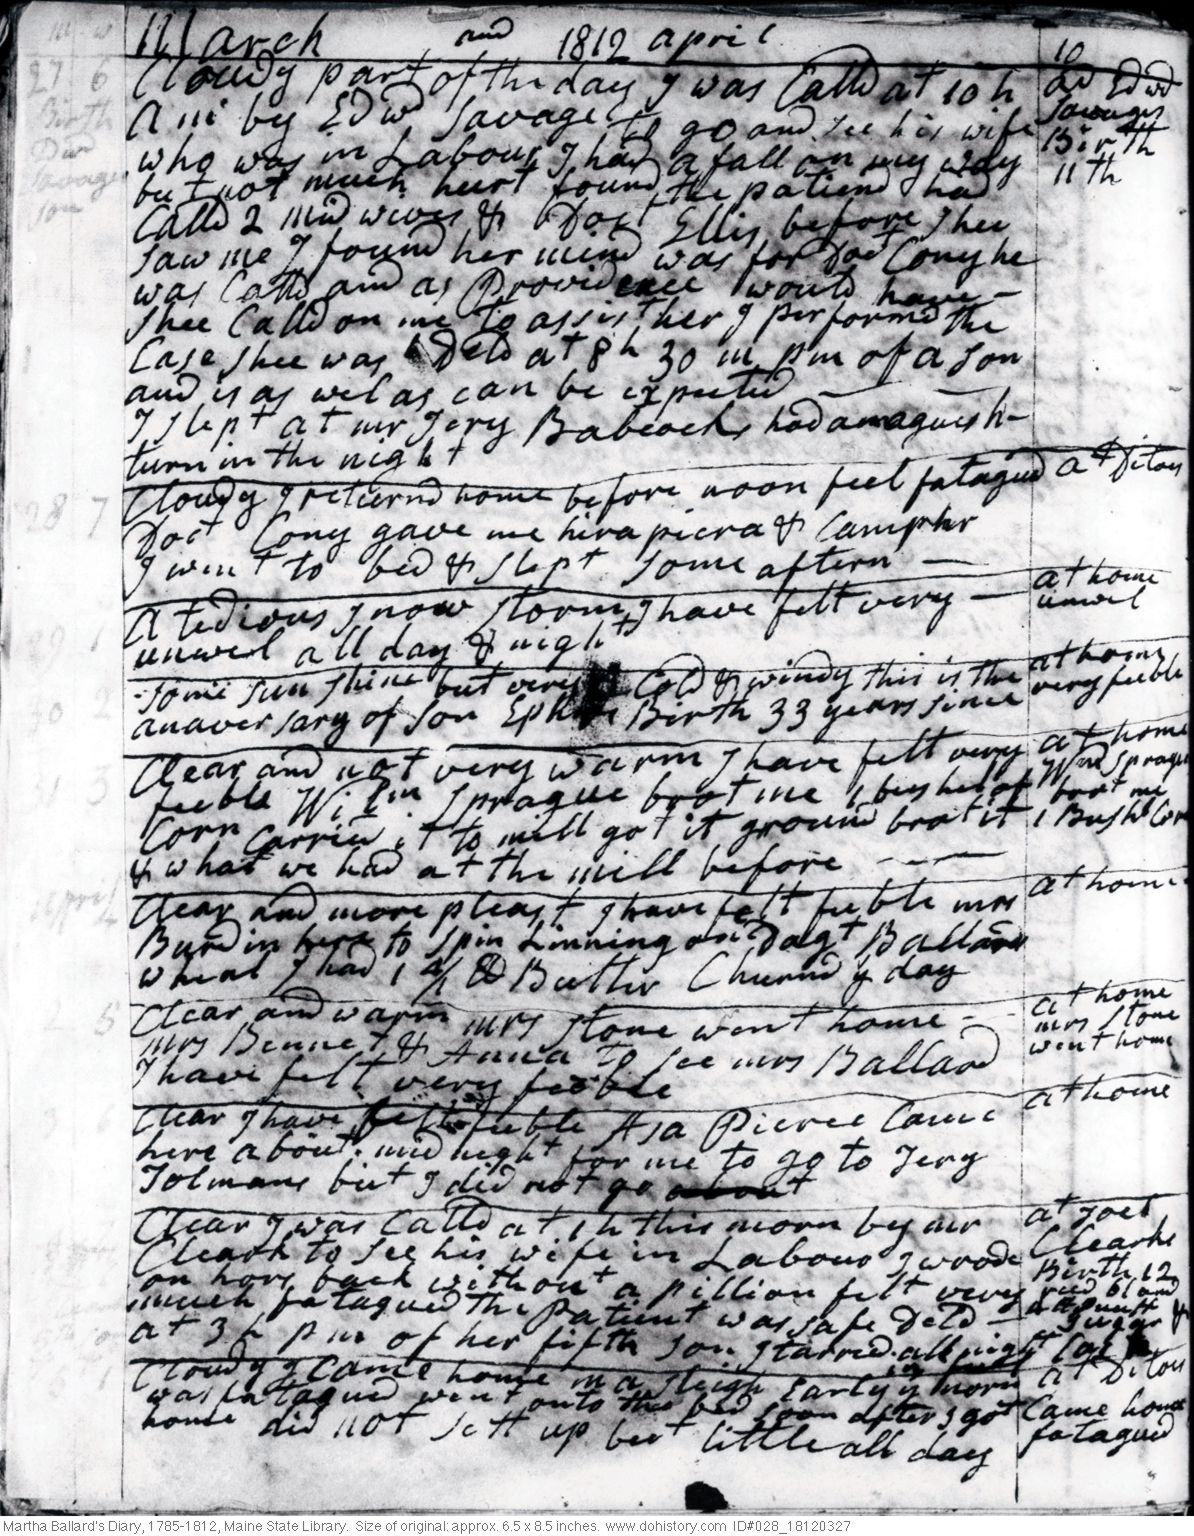 March and 1812 april
27 6 Cloudy part of the day I was Calld at 10 h
Birth a m by Edwd Savage to go and see his wife
who was in Labour I had a fall on my way
but not much hurt found the patiend had
Calld 2 midwives & Doct Ellis before shee
saw me I found her mind was for Doct Cony he
was Calld and as Providence would have
shee Calld on me to assist her I performd the
Case shee was Deld at 8 h 30 m pm of a son
and is as wel as can be expected
I slept at mr Jery Babcocks had an aguish
turn in the night
10
at Edwd
Savages
Birth
11th
28 7 Cloudy I returnd home before noon feel fatagud
Doct Cony gave me hira picra & Camphr
I went to bed & slept some aftern
at Ditois
29 1 A tedious snow storm I have felt very
unwel all day & night
at home
unwel
30 2 some sun shine but very Cold & windy this is the
anaversary of son Ephm Birth 33 years since
at home
very feeble
31 3 Clear and not very warm I have felt very
feeble Wilm Sprague brot me 1 bushel of
Corn Carried it to mill got it ground brot it
& what we had at the mill before
at home
Wm Sprague
brot me
1 Bushl Corn
April
4 Clear and more pleast I have felt feeble mrs
Burdin here to spin Linning on Dagt Ballard
wheal I had 1 Butter Churnd y day
at home
2 5 Clear and warm mrs Stone went home
mrs Bennet & Anna to see mrs Ballard
I have felt very feeble
at home
mrs Stone
went home
3 6 Clear I have felt feeble Asa Pierce Came
here about midnight for me to go to Jery
Tolmans but I did not go
at home
Clear I was Calld at 1 h this morn by mr
Cleark to see his wife in Labour I wrode
on hors back without a pillion felt very
much fatagued the Patient was safe Deld
at 3 h pm of her fifth son I tarred all night
at Joel
Clearks
Birth 12
Cloudy I Came home in a sleigh Early y morn
was fatagued went onto the bed soon after I got
home did not sett up but little all day
at Ditois
Came home
fatagued
Martha Ballard's Diary, 1785-1812, Maine State Library. Size of original: approx. 6.5 x 8.5 inches. www.dohistory.com ID#028_18120327